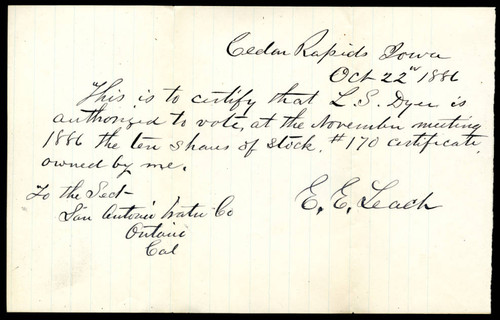 Cedar Rapids Iowa
Oct 22" 1886
This is to certify that L. S. Dyer is
authorized to vote, at the November meeting
1886 the ten shares of stock, #170 certificate,
owned by me.
To the Sect-
San Antonio Water Co
Ontario
Cal
E. E. Leach